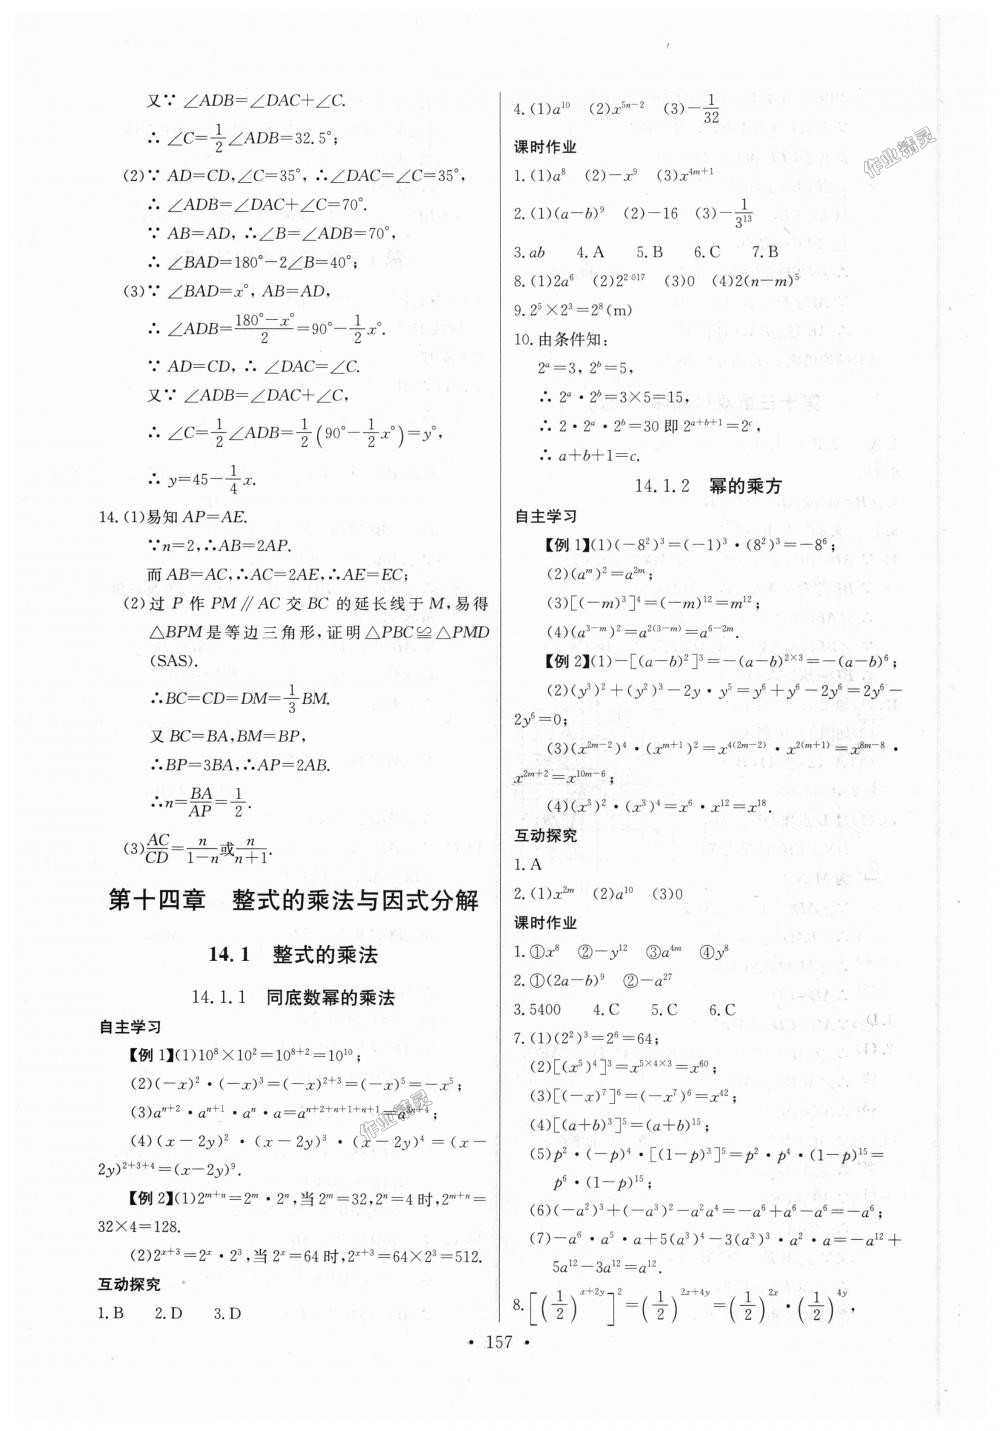 又∵ ∠ADB=∠DAC+∠C.
∴ ∠C=1/2∠ADB=32.5°;
(2)∵ AD=CD,∠C=35°,∴∠DAC=∠C=35°,
∴ ∠ADB=∠DAC+∠C=70°.
∵ AB=AD,∴∠B=∠ADB=70°,
∴ ∠BAD=180°-2∠B=40°;
(3)∵ ∠BAD=x°,AB=AD,
∴ ∠ADB=(180°-x°)/2=90°-1/2x°.
∵ AD=CD,∴ ∠DAC=∠C.
又∵ ∠ADB=∠DAC+∠C,
∴ ∠C=1/2∠ADB=1/2(90°-1/2x°)=y°,
∴ y=45-1/4x.
14.(1)易知AP=AE.
∵n=2,∴AB=2AP.
而AB=AC,∴AC=2AE,∴AE=EC;
(2)过P作PM∥AC交BC的延长线于M,易得
△BPM是等边三角形,证明△PBC≌△PMD
(SAS).
∴BC=CD=DM=1/3BM.
又BC=BA,BM=BP,
∴BP=3BA,∴AP=2AB.
∴n=BA/AP=1/2.
(3)AC/CD=n/(1-n)或n/(n+1).
第十四章 整式的乘法与因式分解
14.1 整式的乘法
14.1.1 同底数幂的乘法
自主学习
【例1】(1)10⁸×10²=10⁸⁺²=10¹⁰;
(2)(-x)²·(-x)³=(-x)²⁺³=(-x)⁵=-x⁵;
(3)aⁿ⁺²·aⁿ⁺¹·aⁿ·a=aⁿ⁺²⁺ⁿ⁺¹⁺ⁿ⁺¹=a³ⁿ⁺⁴;
(4)(x-2y)²·(x-2y)³·(x-2y)⁴=(x-
2y)²⁺³⁺⁴=(x-2y)⁹.
【例2】(1)2ᵐ⁺ⁿ=2ᵐ·2ⁿ,当2ᵐ=32,2ⁿ=4时,2ᵐ⁺ⁿ=
32×4=128.
(2)2ˣ⁺³=2ˣ·2³,当2ˣ=64时,2ˣ⁺³=64×2³=512.
互动探究
1.B 2.D 3.D
4.(1)a¹⁰ (2)x⁵ⁿ⁻² (3)-1/32
课时作业
1.(1)a⁸ (2)-x⁹ (3)x⁴ᵐ⁺¹
2.(1)(a-b)⁹ (2)-16 (3)-1/3¹³
3.ab 4.A 5.B 6.C 7.B
8.(1)2a⁶ (2)2²⁰¹⁷ (3)0 (4)2(n-m)⁵
9.2⁵×2³=2⁸(m)
10.由条件知:
2ᵃ=3,2ᵇ=5,
∴ 2ᵃ·2ᵇ=3×5=15,
∴ 2·2ᵃ·2ᵇ=30即2ᵃ⁺ᵇ⁺¹=2ᶜ,
∴ a+b+1=c.
14.1.2 幂的乘方
自主学习
【例1】(1)(-8²)³=(-1)³·(8²)³=-8⁶;
(2)(aᵐ)²=a²ᵐ;
(3)[(-m)³]⁴=(-m)¹²=m¹²;
(4)(a³⁻ᵐ)²=a²⁽³⁻ᵐ⁾=a⁶⁻²ᵐ.
【例2】(1)-[(a-b)²]³=-(a-b)²ˣ³=-(a-b)⁶;
(2)(y³)²+(y²)³-2y·y⁵=y⁶+y⁶-2y⁶=2y⁶-
2y⁶=0;
(3)(x²ᵐ⁻²)⁴·(xᵐ⁺¹)²=x⁴⁽²ᵐ⁻²⁾·x²⁽ᵐ⁺¹⁾=x⁸ᵐ⁻⁸·
x²ᵐ⁺²=x¹⁰ᵐ⁻⁶;
(4)(x³)²·(x³)⁴=x⁶·x¹²=x¹⁸.
互动探究
1.A
2.(1)x²ᵐ (2)a¹⁰ (3)0
课时作业
1.①x⁸ ②-y¹² ③a⁴ᵐ ④y⁸
2.①(2a-b)⁹ ②-a²⁷
3.5400 4.C 5.C 6.C
7.(1)(2²)³=2⁶=64;
(2)[(x⁵)⁴]³=x⁵ˣ⁴ˣ³=x⁶⁰;
(3)[(-x)⁷]⁶=(-x⁷)⁶=x⁴²;
(4)[(a+b)³]⁵=(a+b)¹⁵;
(5)p²·(-p)⁴·[(1-p)³]⁵=p²·p⁴·(1-p)¹⁵=
p⁶·(1-p)¹⁵;
(6)(-a²)³+(-a³)²-a²a⁴=-a⁶+a⁶-a⁶=-a⁶;
(7)-a⁶·a⁵·a+5(a³)⁴-3(a³)³·a²·a=-a¹²+
5a¹²-3a¹²=a¹².
8.[(1/2)ˣ⁺²ʸ]²=(1/2)²ˣ⁺⁴ʸ=(1/2)²ˣ·(1/2)⁴ʸ,
·157·
作业精灵
作业精灵